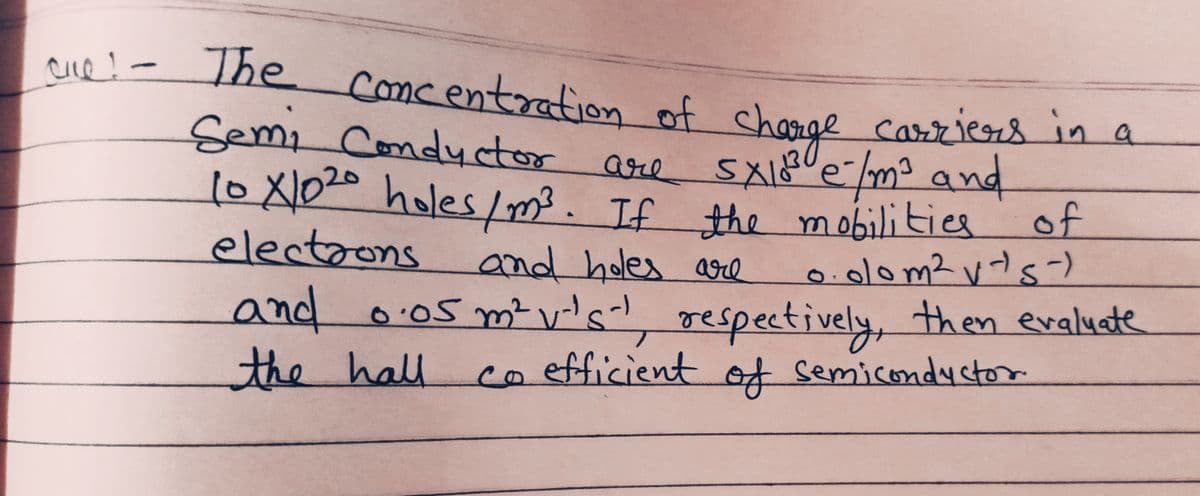 Que:- The concentration of charge carriers in a
Semi Conductor are 5X10³⁰ e⁻/m³ and
10 X10²⁰ holes/m³. If the mobilities of
electrons and holes are 0.010m² v⁻¹s⁻¹
and 0.05 m² v⁻¹s⁻¹, respectively, then evaluate
the hall co efficient of semiconductor.